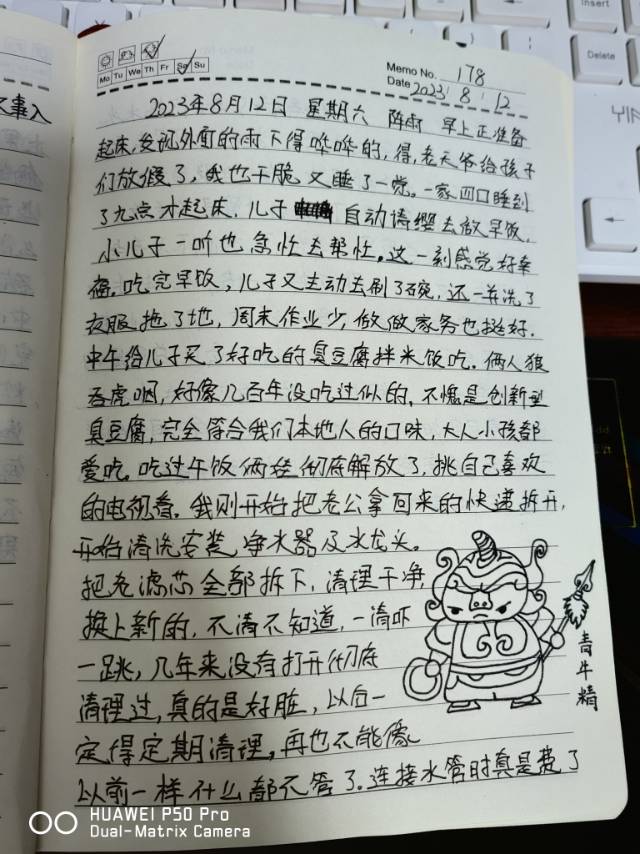 Memo No. 178
Mo Tu We Th Fr Sa Su
Date 2023 / 8 / 12
2023年8月12日 星期六 阵雨 早上正准备
起床,发现外面的雨下得哗哗的,得,老天爷给孩子
们放假了,我也干脆又睡了一觉。一家四口睡到
了九点才起床.儿子自动请缨去做早饭,
小儿子一听也急忙去帮忙。这一刻感觉好幸
福。吃完早饭,儿子又主动去刷了碗,还一并洗了
衣服拖了地,周末作业少,做做家务也挺好.
中午给儿子买了好吃的臭豆腐拌米饭吃。俩人狼
吞虎咽,好像几百年没吃过似的,不愧是创新型
臭豆腐,完全符合我们本地人的口味,大人小孩都
爱吃。吃过午饭俩娃彻底解放了,挑自己喜欢
的电视看。我则开始把老公拿回来的快递拆开,
开始清洗安装净水器及水龙头。
把老滤芯全部拆下,清理干净,
换上新的,不清不知道,一清吓
一跳,几年来没有打开彻底
清理过,真的是好脏,以后一
定得定期清理,再也不能像
以前一样什么都不管了.连接水管时真是费了
青牛精
Insert
Delete
HUAWEI P50 Pro
Dual-Matrix Camera